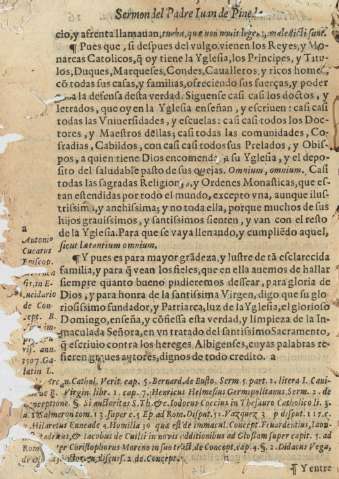 Sermon del Padre Iuan de Pine
cio, y afrenta llamauan, turba, quæ non nouit legem, maledicti sunt.
¶ Pues que, si despues del vulgo, vienen los Reyes, y Mo
narcas Catolicos, q̃ oy tiene la Yglesia, los Principes, y Titu
los, Duques, Marqueses, Condes, Caualleros, y ricos home
cõ todas sus casas, y familias, ofreciendo sus fuerças, y poder
a la defensa desta verdad. Siguense casi casi los doctos, y
letrados, que oy en la Yglesia enseñan, y escriuen: casi casi
todas las Vniuersidades, y escuelas: casi casi todos los Doc-
tores, y Maestros dellas; casi todas las comunidades, Co-
fradias, Cabildos, con casi casi todos sus Prelados, y Obis-
pos, a quien tiene Dios encomendada su Yglesia, y el depo-
sito del saludable pasto de sus ouejas. Omnium, omnium. Casi
todas las sagradas Religiones, y Ordenes Monasticas, que es-
tan estendidas por todo el mundo, excepto vna, aunque ilus-
trissima, y anchissima; y no toda ella, porque muchos de sus
hijos grauissimos, y santissimos sienten, y van con el resto
de la Yglesia. Para que se vaya llenando, y cumpliẽdo aquel,
sicut lætantium omnium.
¶ Y pues es para mayor grãdeza, y lustre de tã esclarecida
familia, y para q̃ vean los fieles, que en ella auemos de hallar
siempre quanto bueno pudieremos dessear, para gloria de
Dios, y para honra de la santissima Virgen, digo que su glo
riosissimo fundador, y Patriarca, luz de la Yglesia, el glorioso
Domingo, enseña, y cõfiessa esta verdad, y limpieza de la In
maculada Señora, en vn tratado del santissimo Sacramento,
q̃ escriuio contra los hereges Albigenses, cuyas palabras re
fieren graues autores, dignos de todo credito. a
a
Antonio
Cucarus
Episcop.
in En-
de Con-
cap.
Verit. cap. 5. Bernard. de Busto. Serm. 5. part. 2. litera I.
Virgin. libr. 1. cap. 7. Henricus Helmesius Germipolitanus. Serm. 2. de
Salmeron tom. 13. super c. 5. Ep. ad Rom. Disput. 51. Vazquez 3. p. disput. 117. c.
Homilia 30 quæ est de immacul. Concept.
& Iacobus de
in nouis additionibus ad Glossam super capit. 5.
Christophorus Moreno in suo tract. de Concept. cap. 4. §. 2. Didacus Vega,
discurs. 2. de Concept.
¶ Y entre